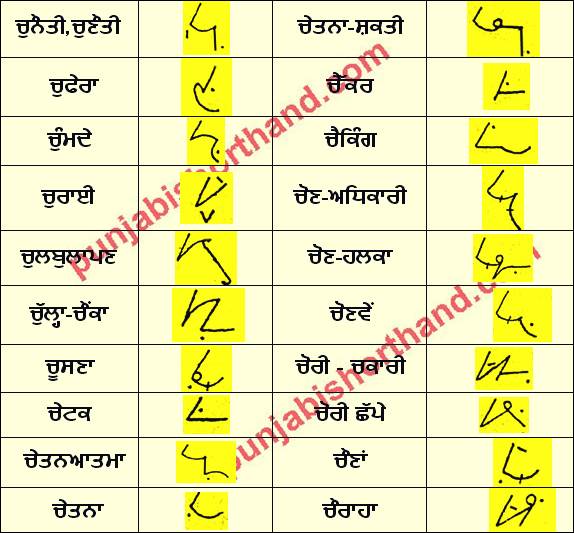 ਚੁਨੌਤੀ,ਚੁਣੌਤੀ ਚੇਤਨਾ-ਸ਼ਕਤੀ
ਚੁਫੇਰਾ ਚੈੱਕਰ
ਚੁੰਮਦੇ ਚੈਕਿੰਗ
ਚੁਰਾਈ ਚੋਣ-ਅਧਿਕਾਰੀ
ਚੁਲਬੁਲਾਪਣ ਚੋਣ-ਹਲਕਾ
ਚੁੱਲ੍ਹਾ-ਚੌਂਕਾ ਚੋਣਵੇਂ
ਚੂਸਣਾ ਚੋਰੀ - ਚਕਾਰੀ
ਚੇਟਕ ਚੋਰੀ ਛੱਪੇ
ਚੇਤਨਆਤਮਾ ਚੌਣਾਂ
ਚੇਤਨਾ ਚੌਰਾਹਾ
punjabishorthand.com
punjabishorthand.com